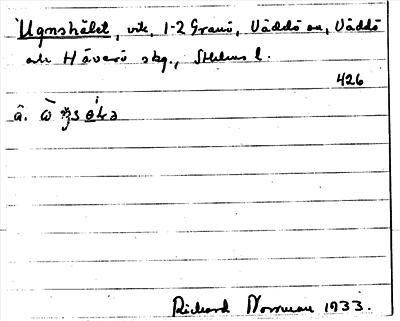 Ugnshålet, vik, 1-2 Granö, Väddö sn, Väddö
och Häverö skg., Sthlms l.
426
å.
Rickard Norrman 1933.